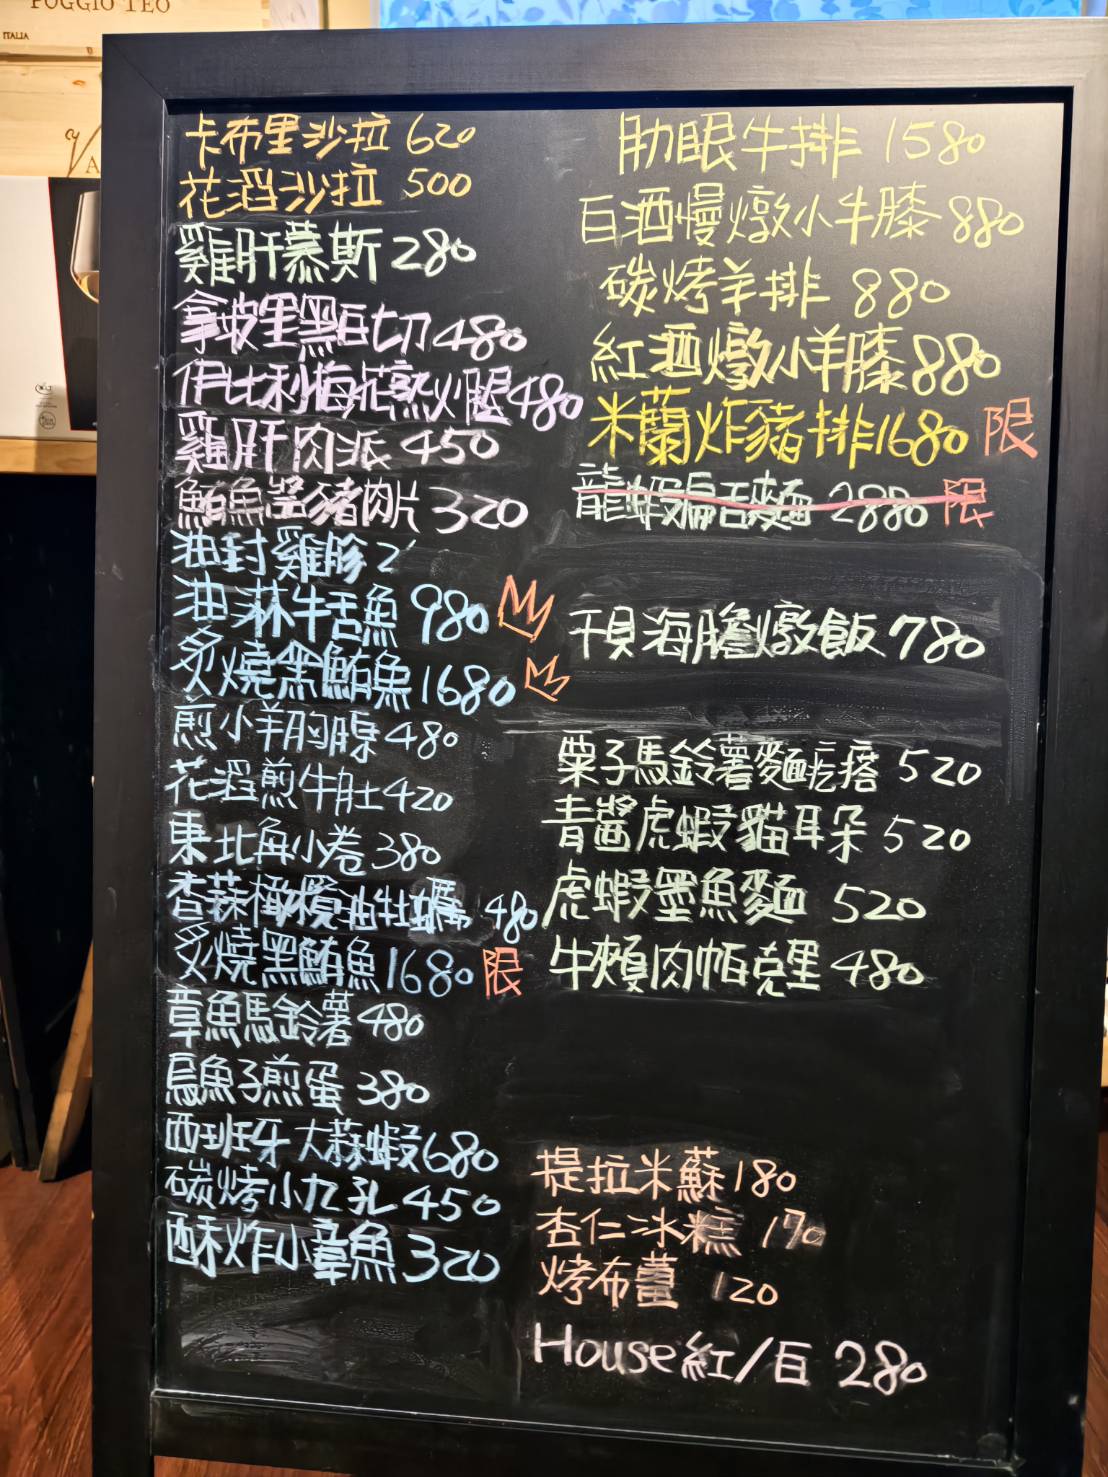 POGGIO TEO
ITALIA
卡布里沙拉 620
花滔沙拉 500
雞肝慕斯 280
拿坡里黑白切 480
伊比利梅花熟火腿 480
雞肝肉派 450
鮪魚醬豬肉片 320
油封雞胗 2
油淋牛舌魚 980
炙燒黑鮪魚 1680
煎小羊胸腺 480
花滔煎牛肚 420
東北角小卷 380
杏蒜橄欖油牡蠣 480
炙燒黑鮪魚 1680 限
章魚馬鈴薯 480
烏魚子煎蛋 380
西班牙大蒜蝦 680
碳烤小九孔 450
酥炸小章魚 320
肋眼牛排 1580
白酒慢燉小牛膝 880
碳烤羊排 880
紅酒燉小羊膝 880
米蘭炸豬排 1680 限
龍蝦扁舌麵 2880 限
干貝海膽燉飯 780
栗子馬鈴薯麵疙瘩 520
青醬虎蝦貓耳朵 520
虎蝦墨魚麵 520
牛頰肉帕克里 480
提拉米蘇 180
杏仁冰糕 170
烤布蕾 120
House 紅/白 280